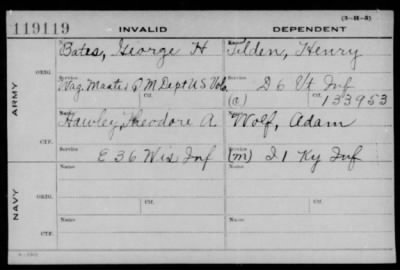 (3-H-3)
119119 INVALID DEPENDENT
Name
Bates, George H Tilden, Henry
ORIG. Service Ctf. Service Ctf.
Wag Master Q M Dept US Vols. D 6 Vt Inf
(a) 133953
ARMY
Name Name
Hawley, Theodore A. Wolf, Adam
CTF. Service Service
E 36 Wis Inf (m) I 1 Ky Inf
NAVY
Name Name
ORIG. Service Ctf. Service Ctf.
Name Name
CTF. Service Service